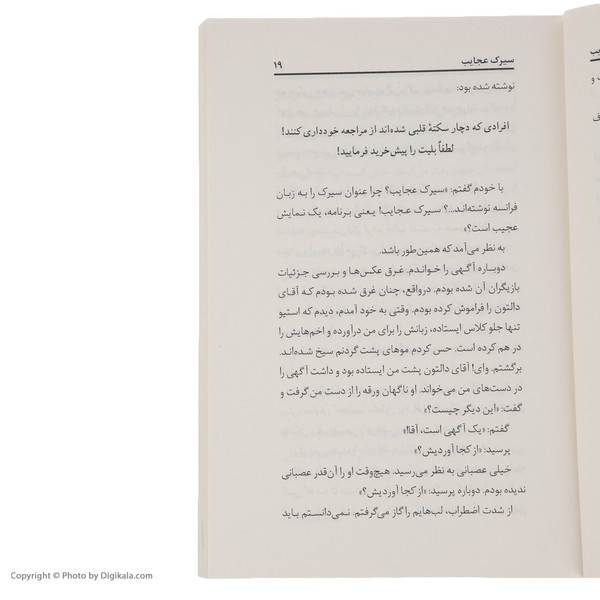 سیرک عجایب ۱۹
نوشته شده بود:
افرادی که دچار سکتهٔ قلبی شده‌اند از مراجعه خودداری کنند!
لطفاً بلیت را پیش‌خرید فرمایید!
با خودم گفتم: «سیرک عجایب؟ چرا عنوان سیرک را به زبان
فرانسه نوشته‌اند...؟ سیرک عجایب! یعنی برنامه، یک نمایش
عجیب است؟»
به نظر می‌آمد که همین‌طور باشد.
دوباره آگهی را خواندم. غرق عکس‌ها و بررسی جزئیات
بازیگران آن شده بودم. درواقع، چنان غرق شده بودم که آقای
دالتون را فراموش کرده بودم. وقتی به خود آمدم، دیدم که استیو
تنها جلو کلاس ایستاده، زبانش را برای من درآورده و اخم‌هایش را
در هم کرده است. حس کردم موهای پشت گردنم سیخ شده‌اند.
برگشتم. وای! آقای دالتون پشت من ایستاده بود و داشت آگهی را
در دست‌های من می‌خواند. او ناگهان ورقه را از دست من گرفت و
گفت: «این دیگر چیست؟»
گفتم: «یک آگهی است، آقا!»
پرسید: «از کجا آوردیش؟»
خیلی عصبانی به نظر می‌رسید. هیچ‌وقت او را آن‌قدر عصبانی
ندیده بودم. دوباره پرسید: «از کجا آوردیش؟»
از شدت اضطراب، لب‌هایم را گاز می‌گرفتم. نمی‌دانستم باید
Copyright © Photo by Digikala.com